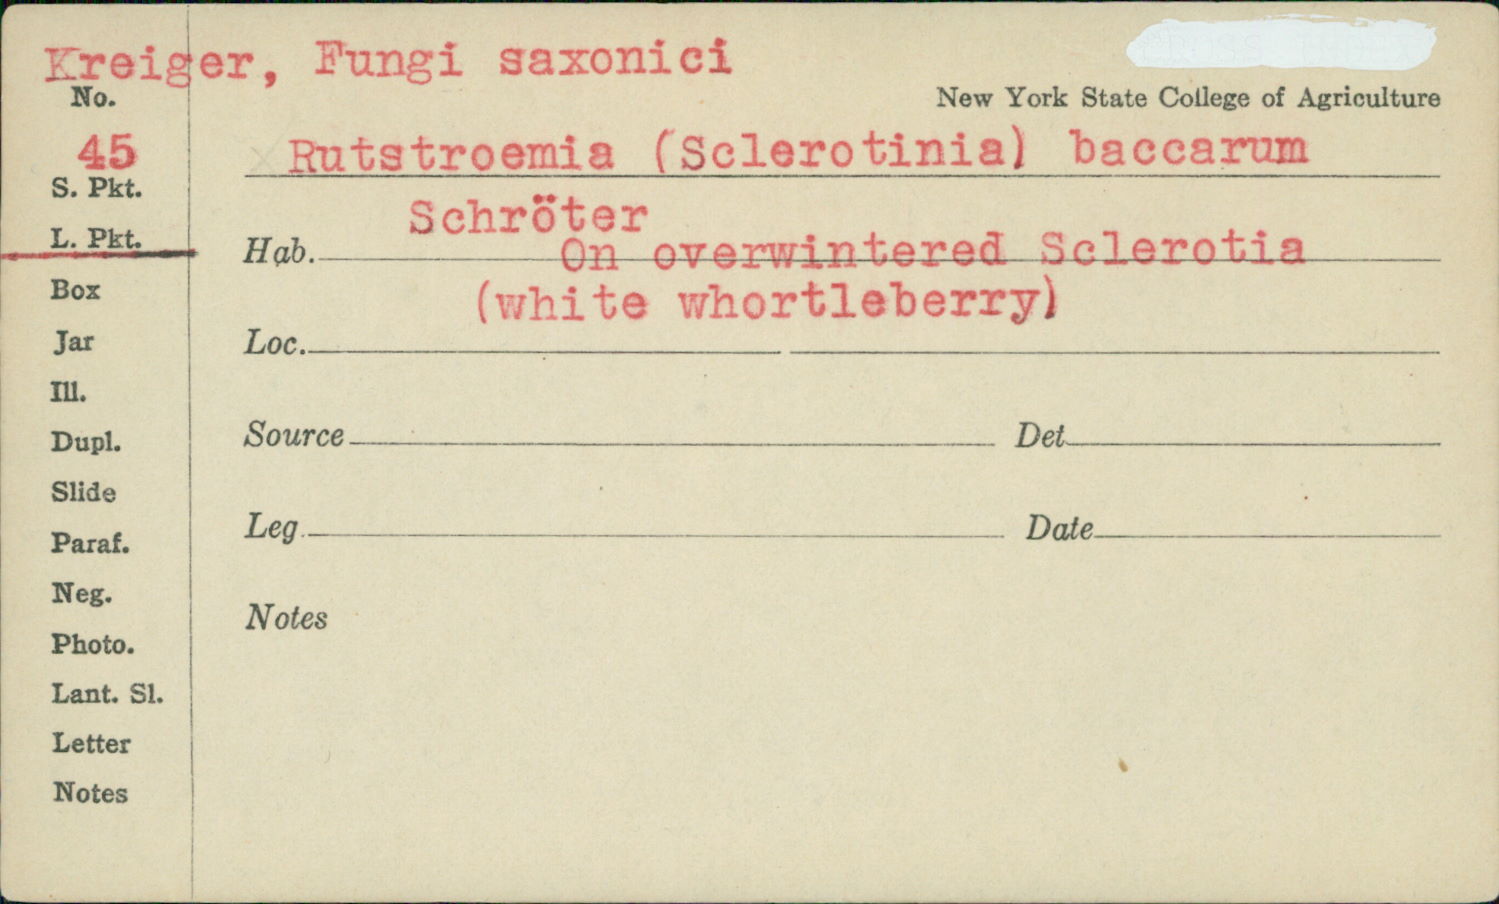 Kreiger, Fungi saxonici
No.
New York State College of Agriculture
45
Rutstroemia (Sclerotinia) baccarum
S. Pkt.
Schröter
L. Pkt.
Hab. On overwintered Sclerotia
(white whortleberry)
Box
Jar
Loc.
Ill.
Dupl.
Source Det
Slide
Leg. Date
Paraf.
Neg.
Notes
Photo.
Lant. Sl.
Letter
Notes